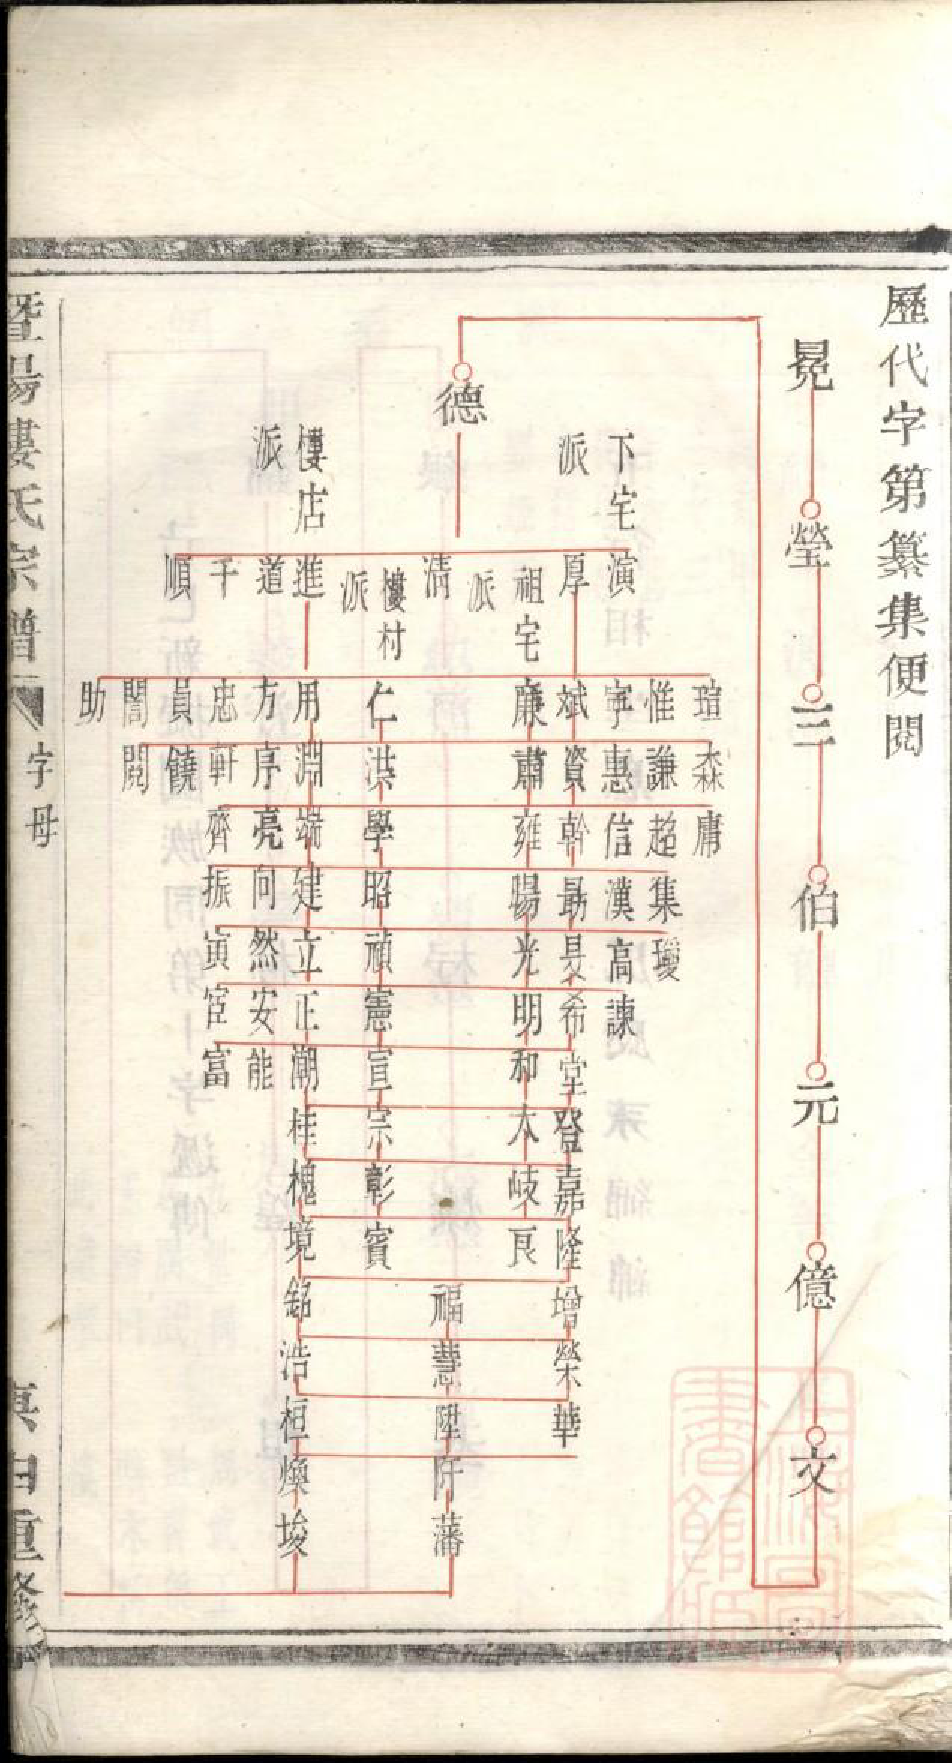 歷代字第纂集便閱
晃
瑩
三
伯
元
億
文
德
下宅派
樓店派
演
厚
祖宅派
清
樓村派
進
道
千
順
瑄 惟 宇 斌 廉 仁 用 方 忠 員 誾 助
森 謙 惠 資 肅 洪 淵 序 軒 饒 閱
庸 超 信 幹 雍 學 端 亮 齊
集 漢 勗 暘 昭 建 向 振
璦 高 昊 光 禎 立 然 寅
諫 希 明 憲 正 安 宦
堂 和 宣 潮 能 富
登 太 宗 桂
嘉 岐 彰 槐
隆 良 賓 境
增 福 銘
榮 慧 浩
華 陞 桓
阡 煥
藩 埈
暨陽婁氏宗譜
字母
真由重修